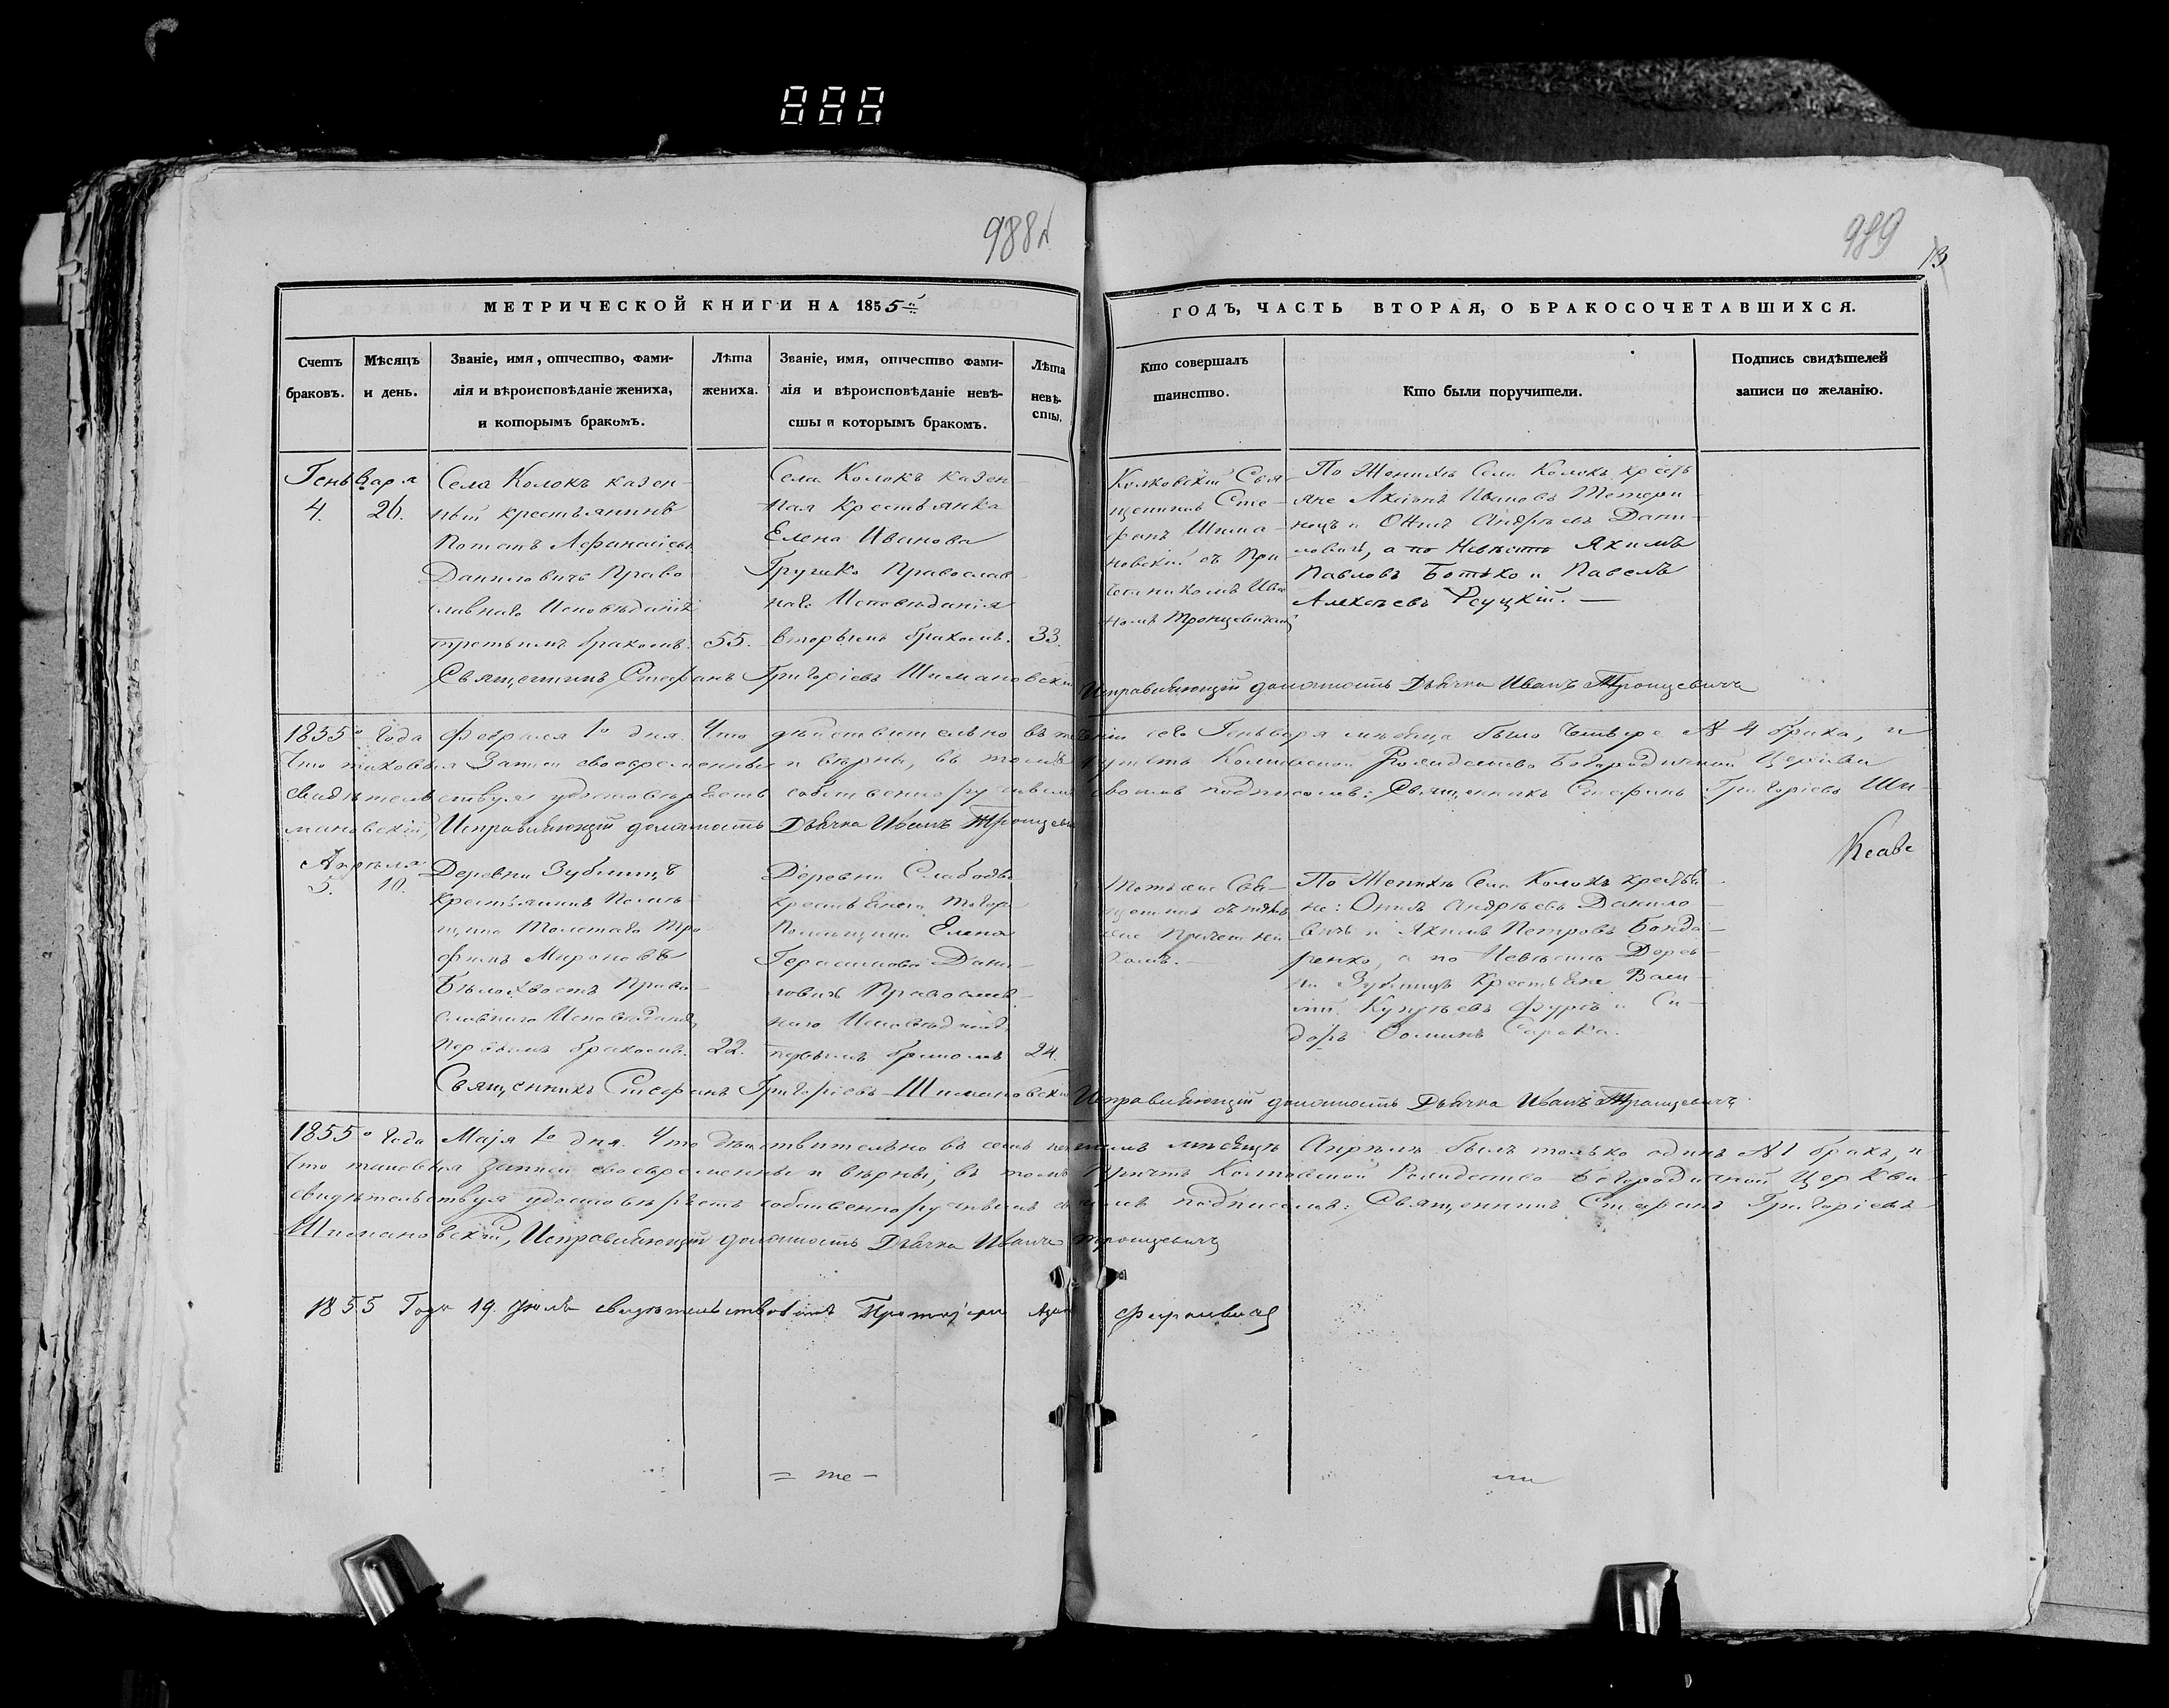 888
988
989
13
МЕТРИЧЕСКОЙ КНИГИ НА 1855
ГОДЪ, ЧАСТЬ ВТОРАЯ, О БРАКОСОЧЕТАВШИХСЯ.
Счетъ
браковъ.
Мѣсяцъ
и день.
Званіе, имя, отчество, фами-
лія и вѣроисповѣданіе жениха,
и которымъ бракомъ.
Лѣта
жениха.
Званіе, имя, отчество фами-
лія и вѣроисповѣданіе невѣ-
сты и которымъ бракомъ.
Лѣта
невѣ-
сты.
Кто совершалъ
таинство.
Кто были поручители.
Подпись свидѣтелей
записи по желанію.
Генваря
4. 26.
Села Колокъ казен-
ный крестьянинъ
Потапъ Афанасіевъ
Даниловичъ Право-
славнаго Исповѣданія
третьимъ бракомъ.
55.
Села Колокъ казен-
ная крестьянка
Елена Иванова
Грушко Православ-
наго Исповѣданія
вторымъ бракомъ.
33.
Колковскій Свя-
щенникъ Сте-
фанъ Шима-
новскій съ При-
четникомъ Ива-
номъ Тронцевичемъ
По Женихѣ Села Колокъ кресть-
яне Иванов
Андрѣевъ Дани-
ловичъ, а по Невѣстѣ Якимъ
Павловъ Ботько и Павелъ
Алексѣевъ
Священникъ Стефанъ Григоріевъ Шимановскій
Исправляющій должность Дьячка Иванъ Тронцевичъ
1855го года Февраля 1го дня. Что дѣйствительно въ теченіи сего Генваря мѣсяца было четыре № 4 брака, и
что таковыя Записи своевременны и вѣрны, въ томъ Причтъ Колковской Рождество Богородичной Церкви
свидѣтельствуя удостовѣряетъ собственноручнымъ своимъ подписомъ: Священникъ Стефанъ Григоріевъ Ши-
мановскій, Исправляющій должность Дьячка Иванъ Тронцевичъ
Апрѣля
5. 10.
Деревни Зубмицъ
Крестьянинъ Помѣ-
щика Толстаго Тро-
фимъ Мироновъ
Бѣлохвостъ Право-
славнаго Исповѣданія
первымъ бракомъ.
22.
Деревни Слабоды
крестьянка тогожъ
Помѣщика Елена
Герасимова Дани-
ловичъ Православ-
наго Исповѣданія
первымъ бракомъ
24.
Тотъ же Свя-
щенникъ съ тѣмъ
же Причетни-
комъ.
По Женихѣ Села Колокъ крестья-
не: Андрѣевъ Данило-
вичъ и Якимъ Петровъ Бонда-
ренко, а по Невѣстѣ Дерев-
ни Зубмицъ Крестьяне Васи-
лій и Си-
доръ Ѳоминъ Сорока.
Священникъ Стефанъ Григоріевъ Шимановскій
Исправляющій должность Дьячка Иванъ Тронцевичъ
1855го года Маія 1го дня. Что дѣйствительно въ семъ мѣсяцѣ Апрѣлѣ былъ только одинъ № 1 бракъ, и
что таковыя Записи своевременны и вѣрны, въ томъ Причтъ Колковской Рождество-Богородичной Церкви
свидѣтельствуя удостовѣряетъ собственноручнымъ своимъ подписомъ: Священникъ Стефанъ Григоріевъ
Шимановскій, Исправляющій должность Дьячка Иванъ Тронцевичъ
1855 Года 19 Іюля свидѣтельствовалъ